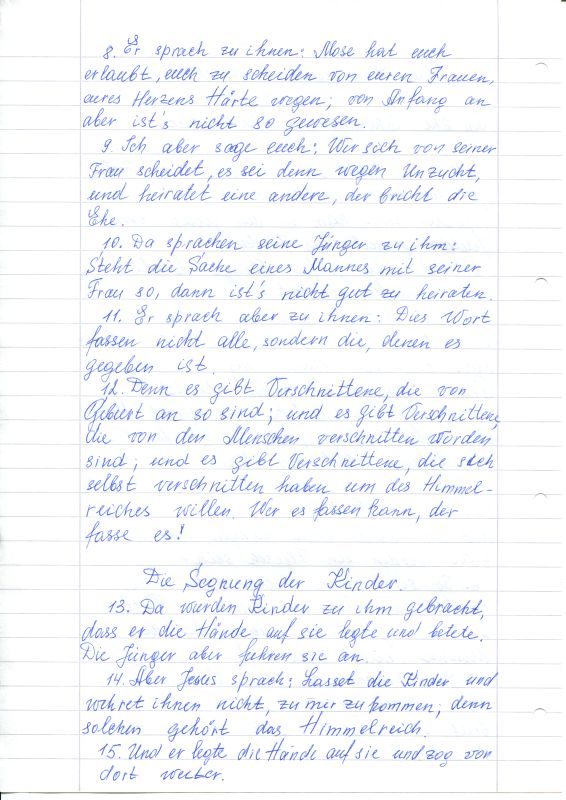 8. Er sprach zu ihnen: Mose hat euch
erlaubt, euch zu scheiden von euren Frauen,
eures Herzens Härte wegen; von Anfang an
aber ist's nicht so gewesen.
9. Ich aber sage euch: Wer sich von seiner
Frau scheidet, es sei denn wegen Unzucht,
und heiratet eine andere, der bricht die
Ehe.
10. Da sprachen seine Jünger zu ihm:
Steht die Sache eines Mannes mit seiner
Frau so, dann ist's nicht gut zu heiraten.
11. Er sprach aber zu ihnen: Dies Wort
fassen nicht alle, sondern die, denen es
gegeben ist.
12. Denn es gibt Verschnittene, die von
Geburt an so sind; und es gibt Verschnittene,
die von den Menschen verschnitten worden
sind; und es gibt Verschnittene, die sich
selbst verschnitten haben um des Himmel-
reiches willen. Wer es fassen kann, der
fasse es!
Die Segnung der Kinder.
13. Da wurden Kinder zu ihm gebracht,
dass er die Hände auf sie legte und betete.
Die Jünger aber fuhren sie an.
14. Aber Jesus sprach: Lasset die Kinder und
wehret ihnen nicht, zu mir zu kommen; denn
solchen gehört das Himmelreich.
15. Und er legte die Hände auf sie und zog von
dort weiter.